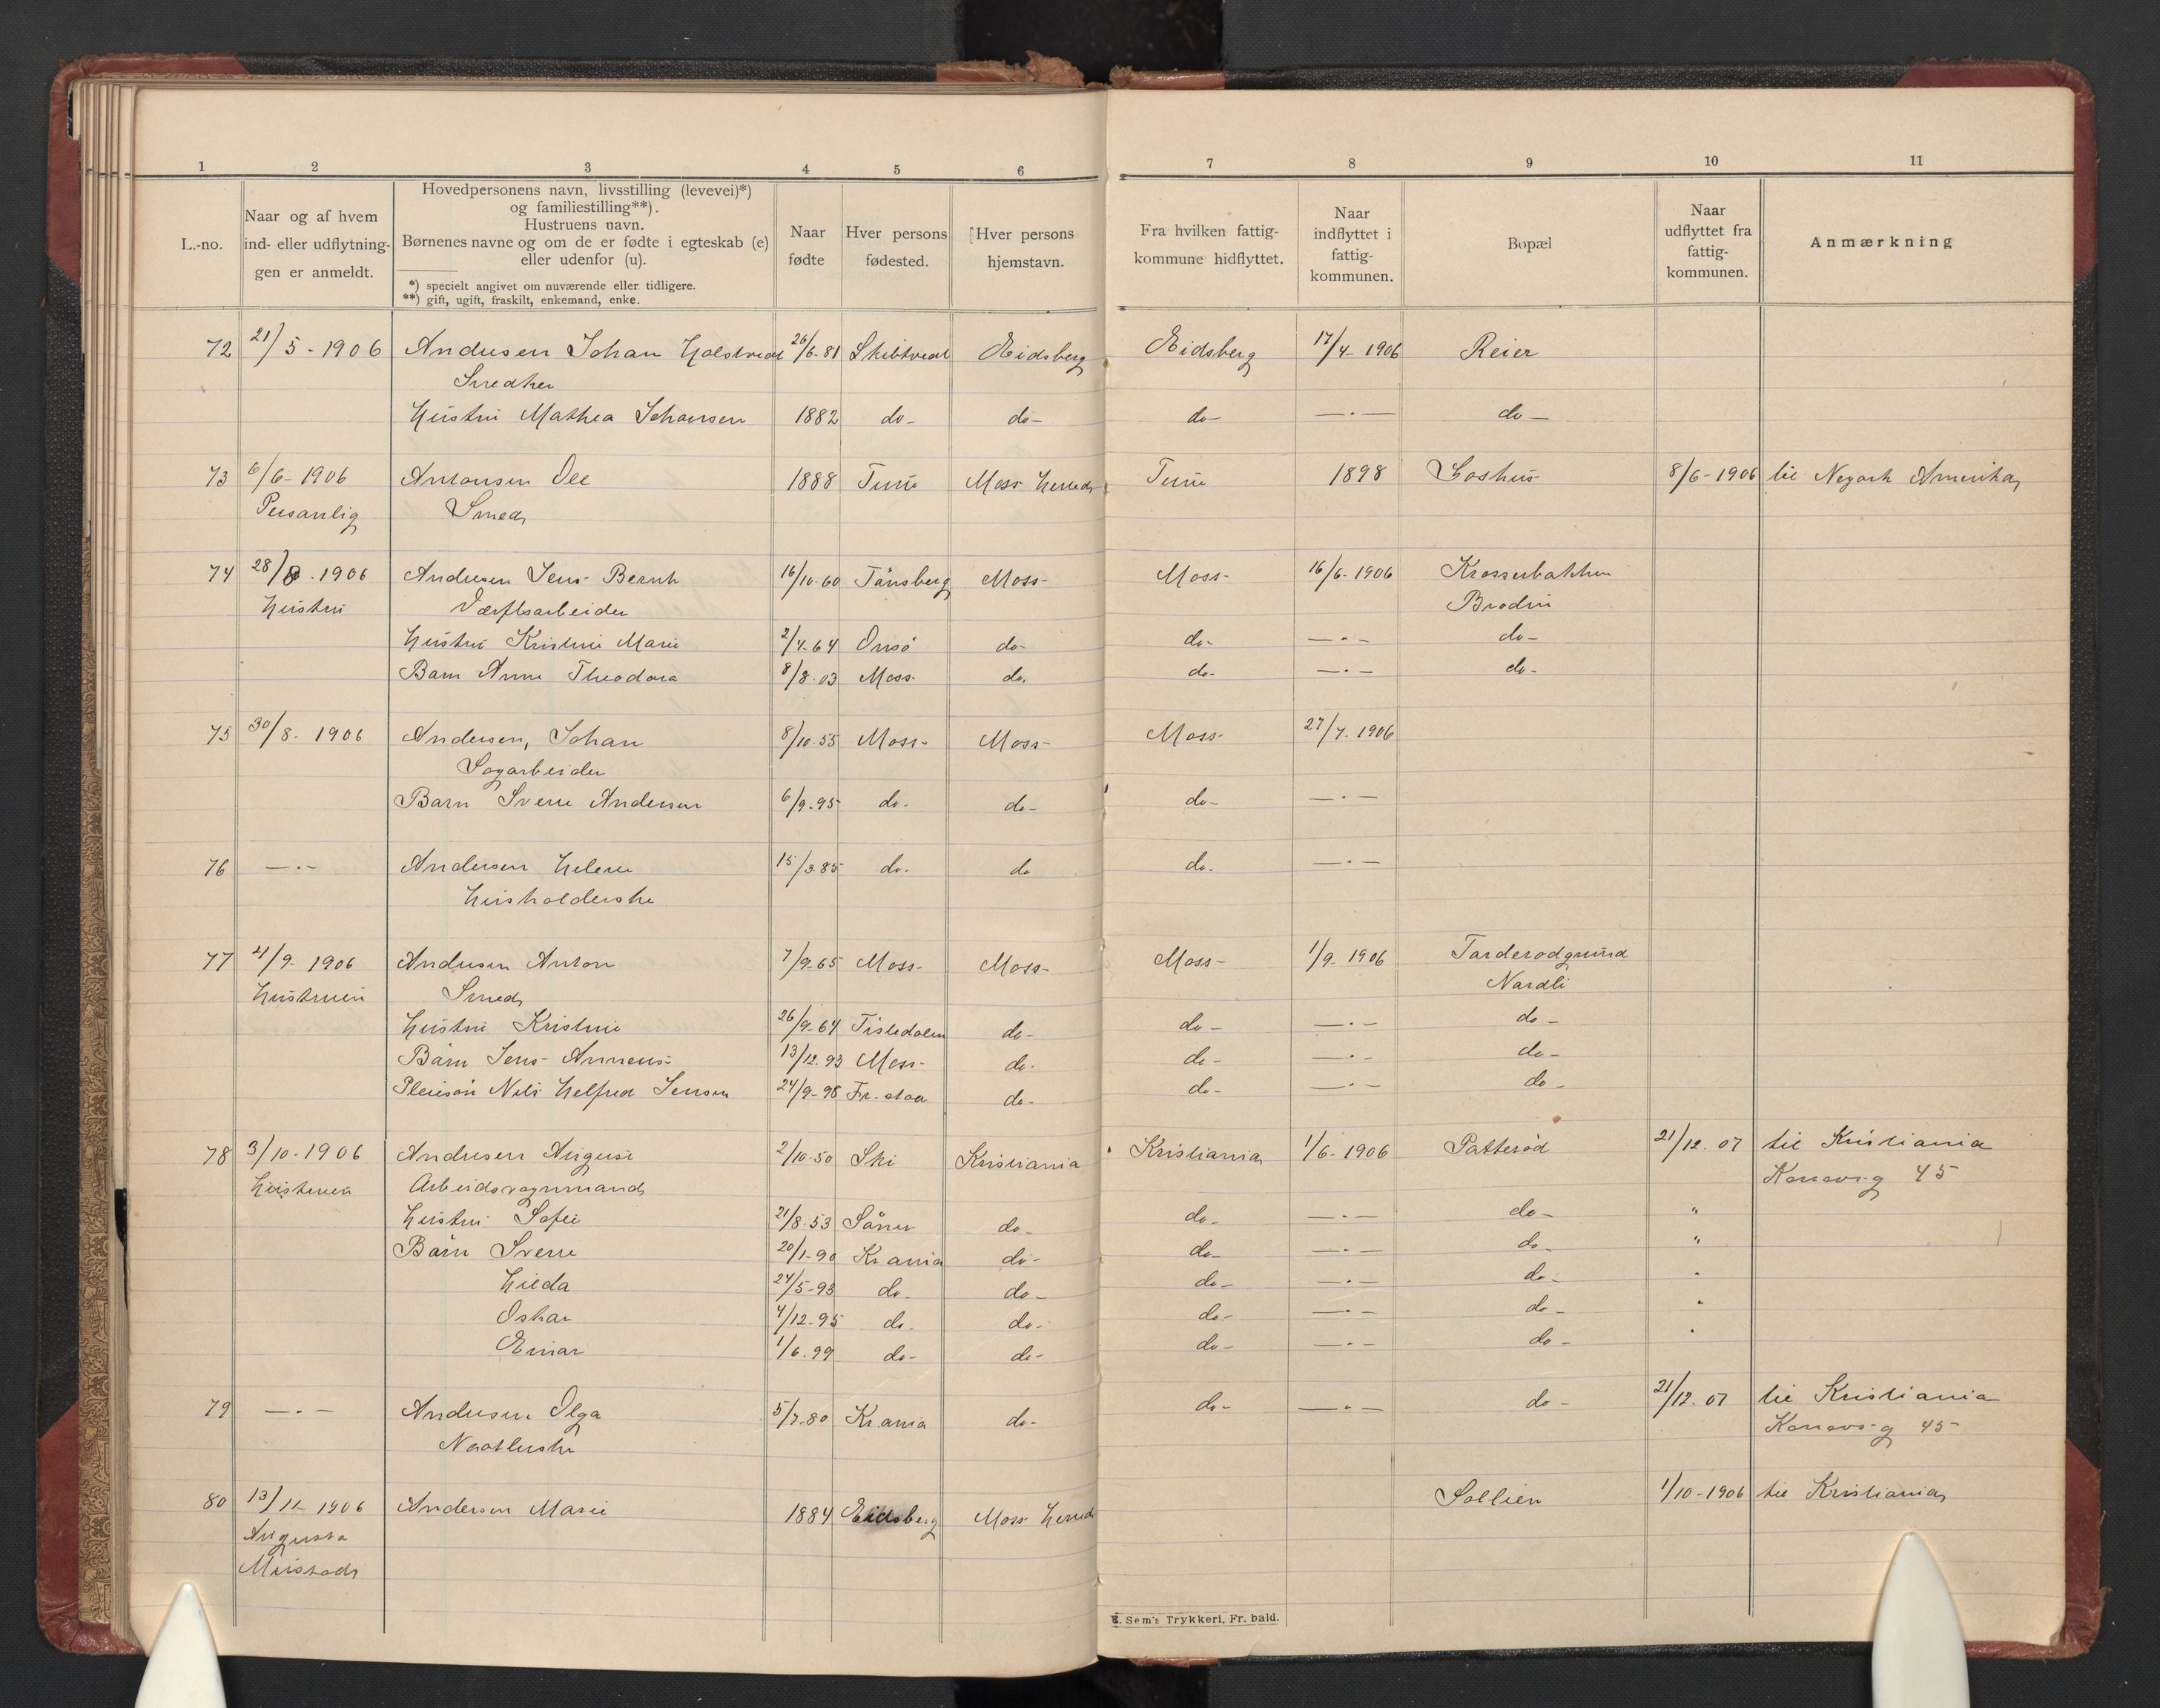 1 2 3 4 5 6 7 8 9 10 11
L.-no.
Naar og af hvem
ind- eller udflytnin-
gen er anmeldt.
Hovedpersonens navn, livsstilling (levevei)*)
og familiestilling**).
Hustruens navn.
Børnenes navne og om de er fødte i egteskab (e)
eller udenfor (u).
*) specielt angivet om nuværende eller tidligere.
**) gift, ugift, fraskilt, enkemand, enke.
Naar
fødte
Hver persons
fødested.
Hver persons
hjemstavn.
Fra hvilken fattig-
kommune hidflyttet.
Naar
indflyttet i
fattig-
kommunen.
Bopæl
Naar
udflyttet fra
fattig-
kommunen.
Anmærkning
72 21/5-1906 Andersen Johan 26/6-81 Skibtvedt Eidsberg Eidsberg 17/4-1906 Reier
Smedker
Hustru Mathea Johansen 1882 do- do- do- —·— do-
73 6/6-1906 Antonsen Ole 1888 Tune Moss Herred Tune 1898 Loshus 8/6-1906 til Neyork Amerika
Personlig Smed
74 28/8-1906 Andersen Jens Bernh 16/10-60 Tånsberg Moss- Moss- 16/6-1906 Krosserbakken
Hustru Værftsarbeider Brodin
Hustru Kristine Marie 2/4-64 Onsö do- do- —·— do-
Barn Anne Theodora 8/8-03 Moss- do. do- —·— do-
75 30/8-1906 Andersen, Johan 8/10-55 Moss- Moss- Moss- 27/7-1906
Sagarbeider
Barn Sverre Andersen 6/9-95 do- do- do- —·—
76 —·— Andersen Helene 15/3 85 do. do do. —·—
Husholderske
77 4/9-1906 Andersen Anton 7/9-65 Moss- Moss- Moss- 1/9-1906 Tarderodgrund
Hustruen Smed Nardli
Hustru Kristine 26/9-64 Tistedalen do- do- —·— do-
Barn Jens 13/12-93 Moss- do- do- —·— do-
Pleiesön Nils Helfred Jensen 24/9-98 Fr.stad do- do- —·— do-
78 3/10-1906 Andersen August 2/10-50 Ski Kristiania Kristiania 1/6-1906 Patteröd 21/12-07 til Kristiania
Hustruen Arbeidsvognmand 45
Hustru Sofie 21/8-53 Såner do- do- —·— do- "
Barn Sverre 20/1-90 Krania do- do- —·— do- "
Hilda 24/5-93 do- do- do- —·— do- "
Oskar 4/12-95 do. do- do- —·— do- "
Einar 1/6-99 do- do- do- —·— do- "
79 —·— Andersen Olga 5/7-80 Krania do- do- —·— do- 21/12-07 til Kristiania
45
80 13/11-1906 Andersen Marie 1884 Eidsberg Moss Herred Sollien 1/10-1906 til Kristiania
Augusta
E. Sem's Trykkeri, Fr. hald.